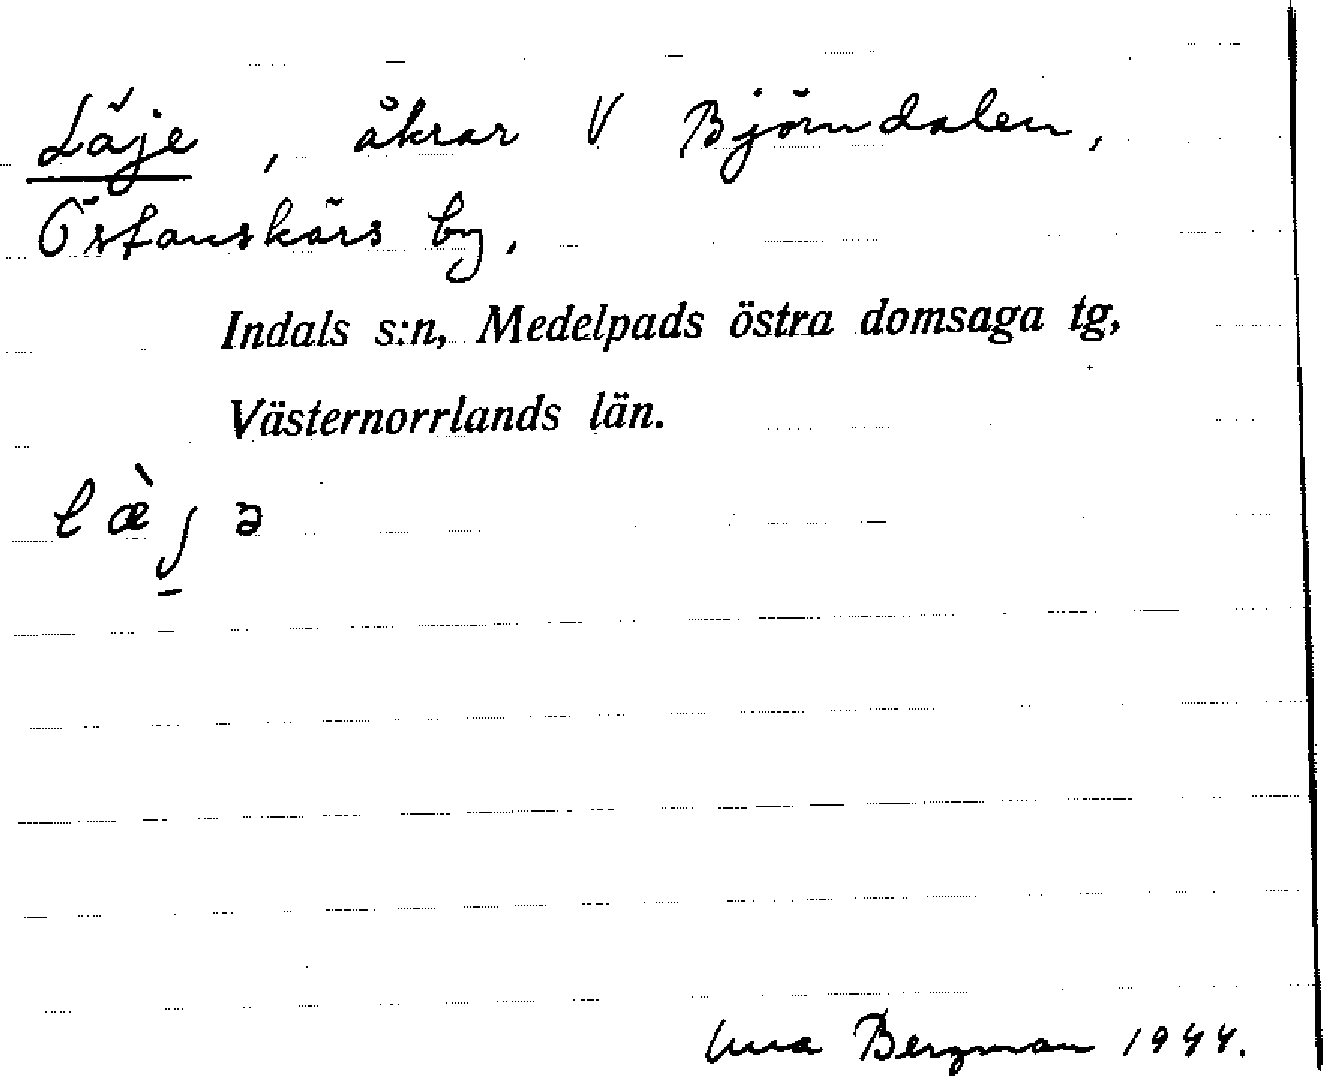 Läje, åkrar V Björndalen,
Östanskärs by.
Indals s:n, Medelpads östra domsaga tg,
Västernorrlands län.
læ̀j̠ə
Bergman 1944.